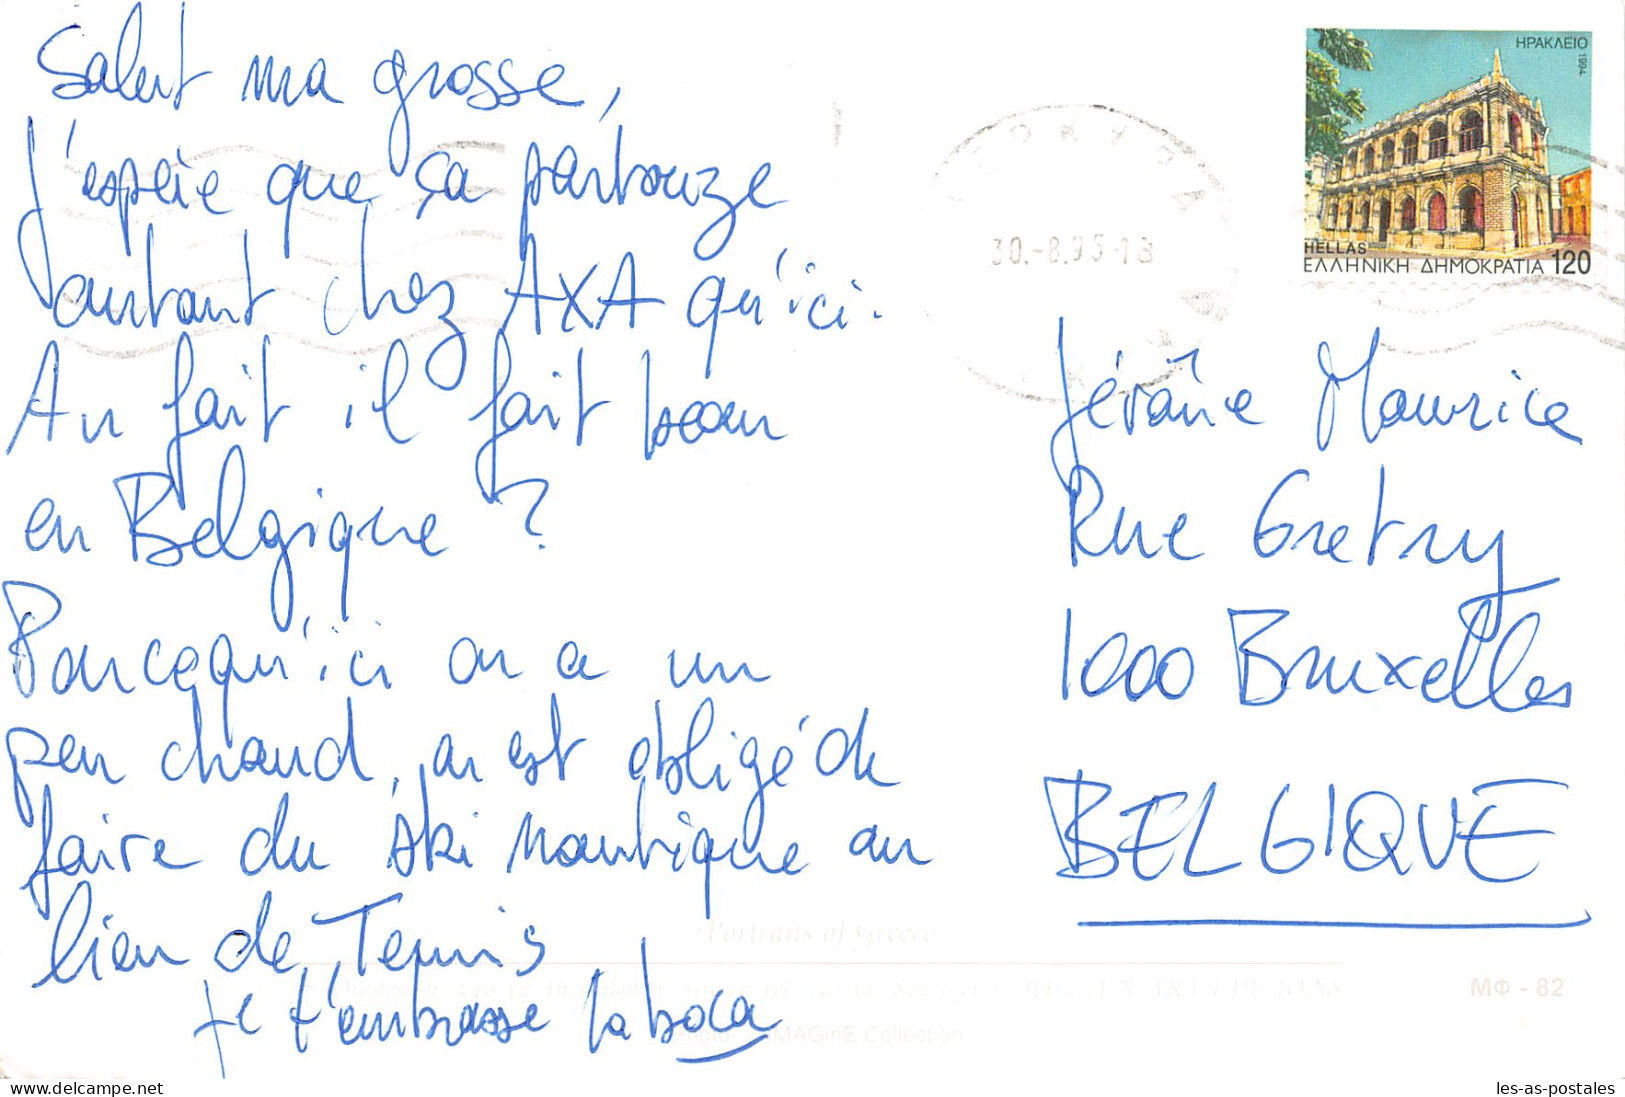 Salut ma grosse,
J'espère que ça partouze
autant chez AXA qu'ici.
Au fait il fait beau
en Belgique ?
Parcequ'ici on a un
peu chaud, on est obligé de
faire du ski nautique au
lieu de Tennis
Je t'embrasse
ΗΡΑΚΛΕΙΟ
1994
HELLAS
ΕΛΛΗΝΙΚΗ ΔΗΜΟΚΡΑΤΙΑ 120
30.-8.95-18
Jérôme Maurice
Rue Gretry
1000 Bruxelles
BELGIQUE
Portraits of Greece
ΜΦ - 82
IMAGinE Collection
www.delcampe.net
les-as-postales